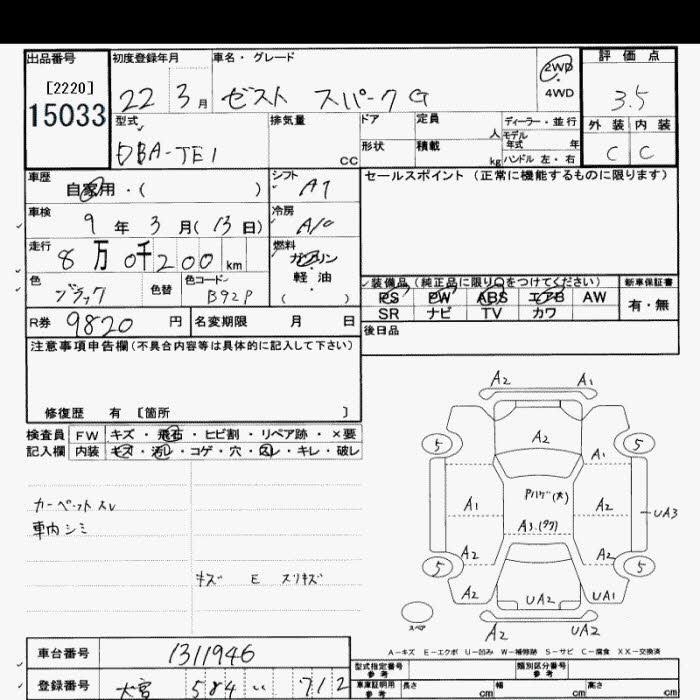 出品番号 初度登録年月 車名・グレード 2WD 評価点
[2220] 22 3月 ゼスト スパークG 4WD 3.5
15033
型式 排気量 ドア 定員 人 ディーラー・並行 外装 内装
モデル年式 年
DBA-JE1 cc 形状 積載 kg ハンドル 左・右 C C
車歴 自家用・( ) シフト AT セールスポイント(正常に機能するものに限ります)
車検 9年 3月(13日) 冷房 A/C
走行 8万0千200km 燃料 ガソリン
軽・油
( )
色 ブラック 色替 色コード B92P 装備品(純正品に限り○をつけてください) 新車保証書
PS PW ABS エアB AW 有・無
SR ナビ TV カワ
R券 9820円 名変期限 月 日 後日品
注意事項申告欄(不具合内容等は具体的に記入して下さい)
修復歴 有 〔箇所 〕
検査員 FW キズ・飛石・ヒビ割・リペア跡・×要
記入欄 内装 キズ・汚レ・コゲ・穴・スレ・キレ・破レ
カーペットスレ
車内シミ
キズ E スリキズ
A2 A1
A2
5 5
A1
A1 Pハゲ(大) A2 UA3
A3.(タワ)
A2 A2
5 5
A2 UA2 UA1
スペア A2 UA2
A-キズ E-エクボ U-凹み W-補修跡 S-サビ C-腐食 XX-交換済
車台番号 1311946
型式指定番号 参考 類別区分番号 参考
登録番号 大宮 584 712
車庫証明用 参考 長さ cm 幅 cm 高さ cm